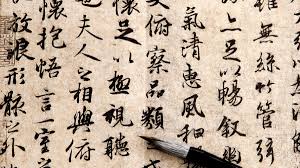 無絲竹管弦
足以暢敘
氣清惠風和
俯察品類
懷足以極視聽
也夫人之相與俯
懷抱悟言一室
放浪形骸之外